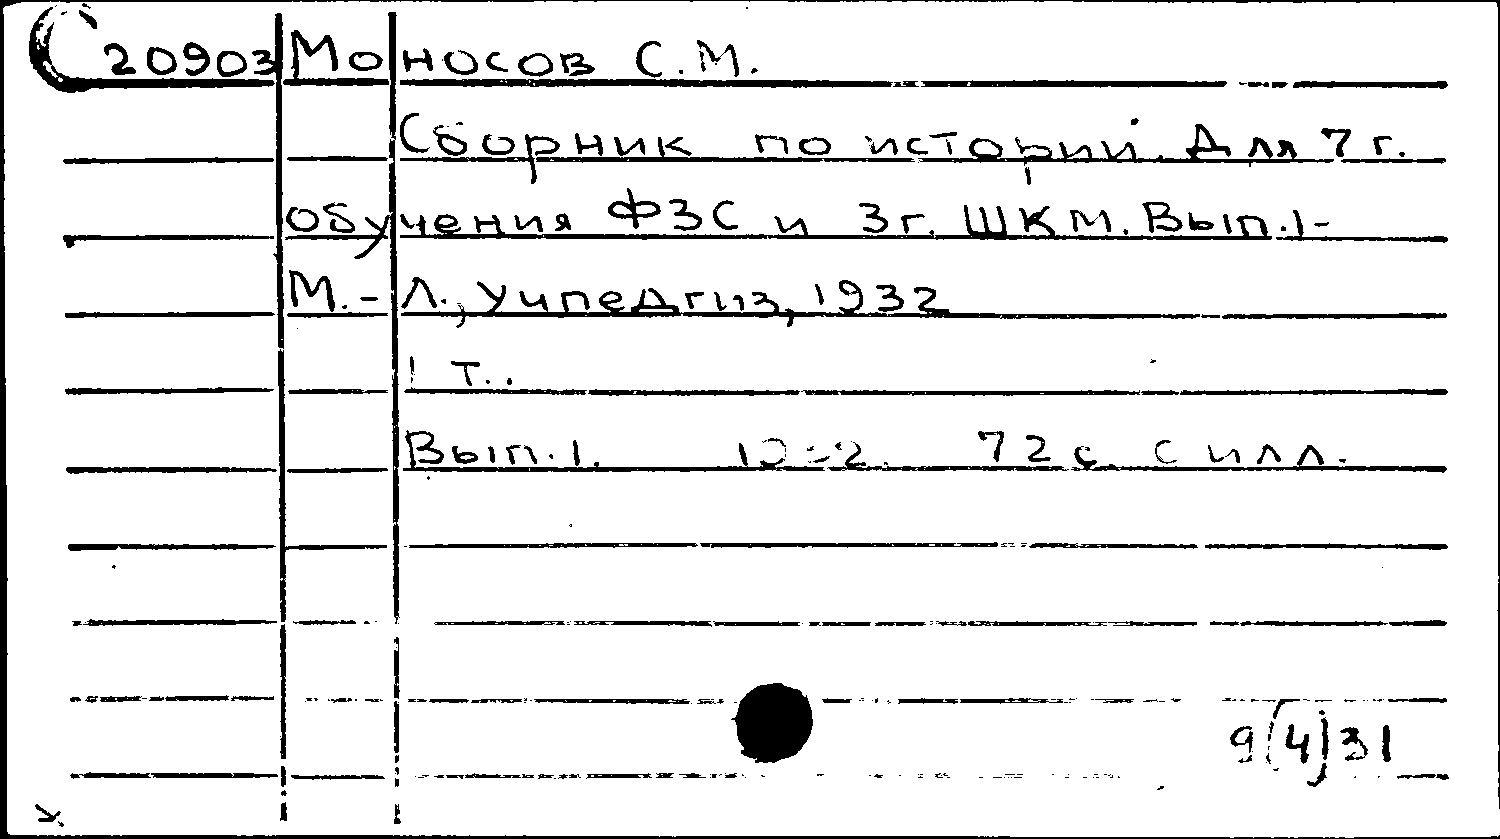 С20903 Моносов С.М.
Сборник по истории. Для 7 г.
обучения ФЗС и 3 г. ШКМ. Вып.1-
М.-Л., Учпедгиз, 1932
1 т..
Вып.1. 1932. 72 с. с илл.
9(4)31